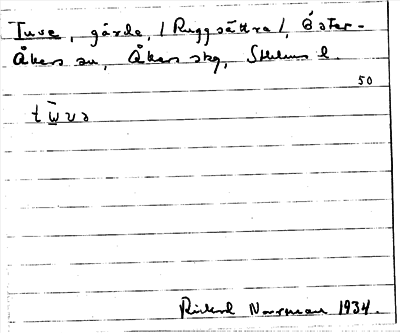 Tuve, gärde, /Ruggsättra/, Öster-
Åkers sn, Åkers skg, Sthlms l.
50
Rickard Norrman 1934.